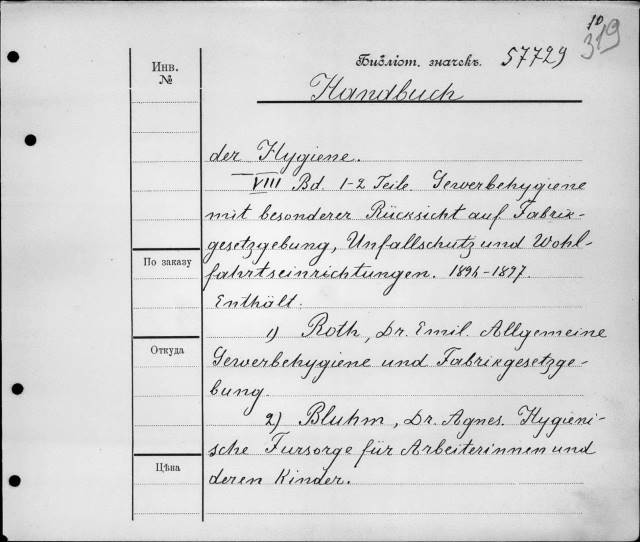 10
319
Инв.
№
Библіот. значекъ. 57729
Handbuch
der Hygiene.
VIII Bd. 1-2 Teile. Gewerbehygiene
mit besonderer Rücksicht auf Fabrik-
gesetzgebung, Unfallschutz und Wohl-
fahrtseinrichtungen. 1894-1897.
Enthält:
1) Roth, Dr. Emil. Allgemeine
Gewerbehygiene und Fabrikgesetzge-
bung.
2) Bluhm, Dr. Agnes. Hygieni-
sche Fursorge für Arbeiterinnen und
deren Kinder.
По заказу
Откуда
Цѣна